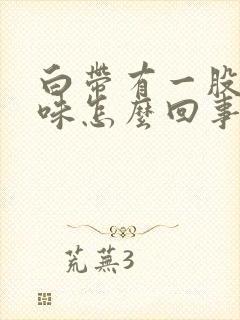 白带有一股
味怎麼回事
荒蕪3